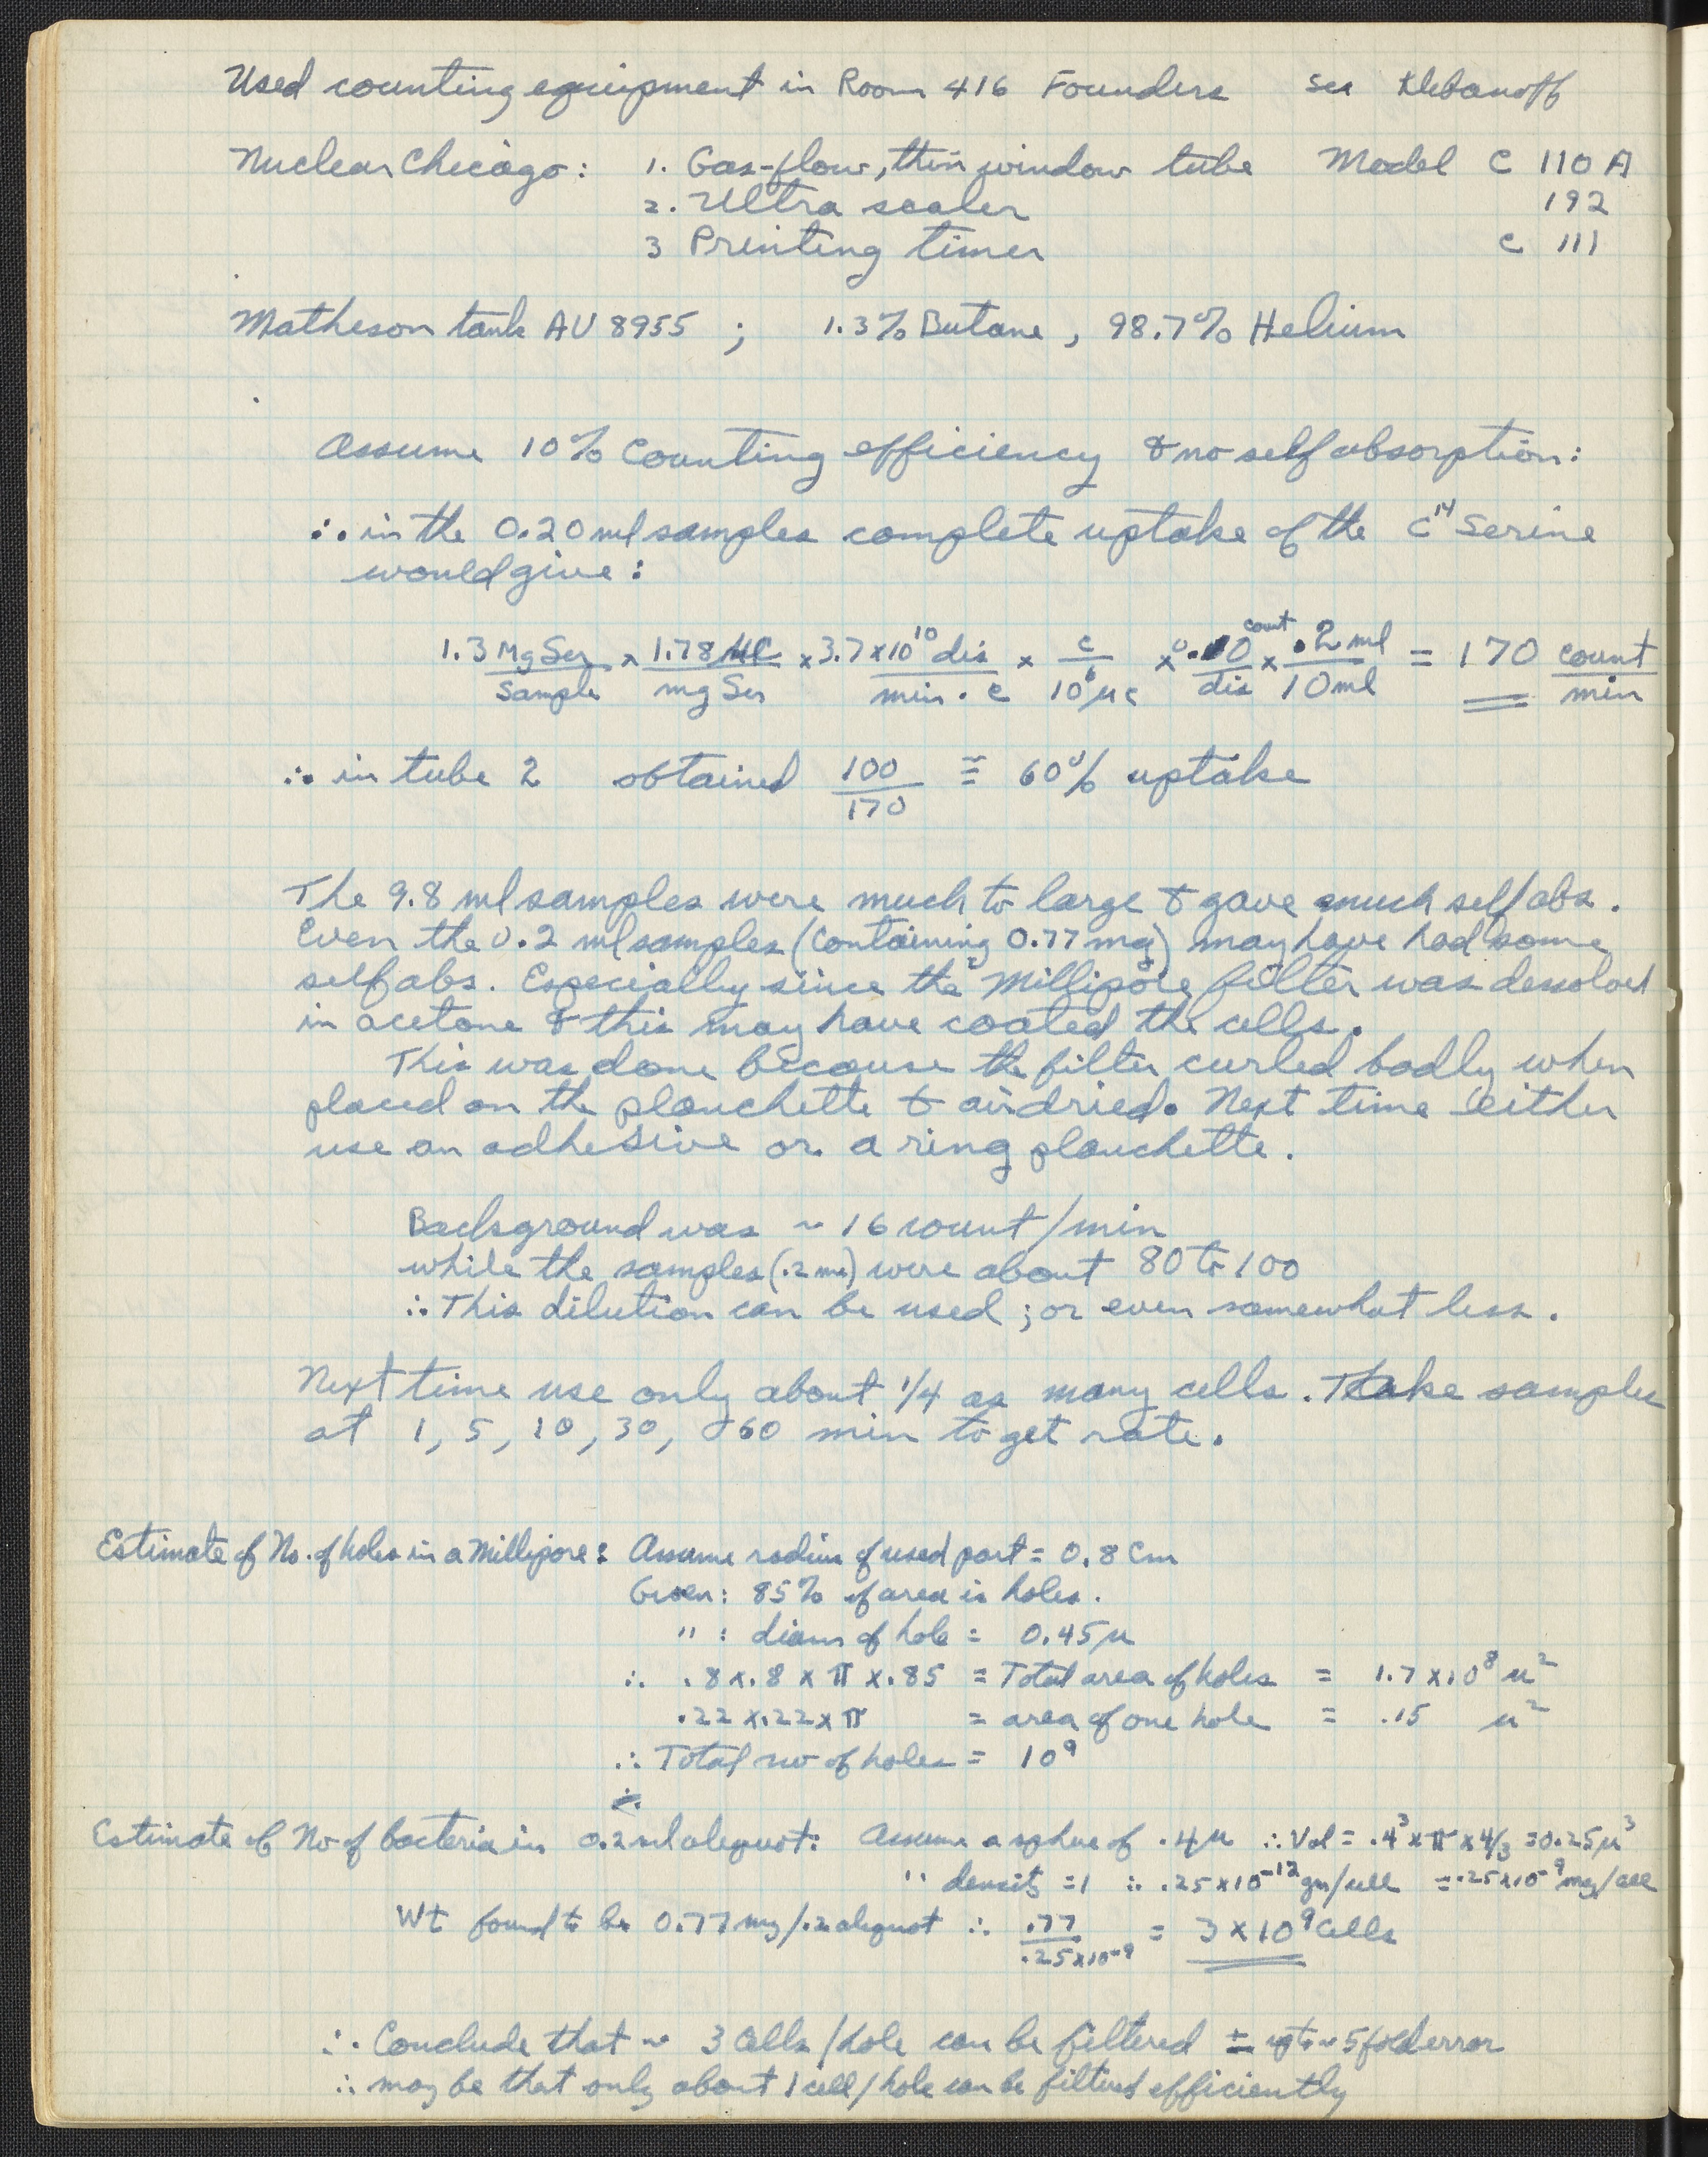 Used counting equipment in Room 416 Founders see Klebanoff
Nuclear Chicago: 1. Gas-flow, thin window tube Model C 110 A
2. Ultra scaler 192
3 Printing timer C 111
Matheson tank AU 8955 ; 1.3% Butane, 98.7% Helium
Assume 10% Counting efficiency & no self absorption:
∴ in the 0.20 ml samples complete uptake of the C¹⁴ Serine
would give:
1.3 Mg Ser / Sample × 1.78 µC / mg Ser × 3.7 × 10¹⁰ dis / min . c × c / 10⁶ µc × 0.10 count / dis × .2 ml / 10 ml = 170 count / min
∴ in tube 2 obtained 100 / 170 ≅ 60% uptake
The 9.8 ml samples were much to large & gave much self abs.
Even the 0.2 ml samples (containing 0.77 mg) may have had some
self abs. Especially since the Millipore filter was desolved
in acetone & this may have coated the cells.
This was done because the filter curled badly when
placed on the planchette & air dried. Next time either
use an adhesive or a ring planchette.
Background was ~ 16 count/min
while the samples (.2 ml) were about 80 to 100
∴ This dilution can be used; or even somewhat less.
Next time use only about 1/4 as many cells. Take samples
at 1, 5, 10, 30, & 60 min to get rate.
Estimate of No. of holes in a Millipore: Assume radius of used part = 0.8 cm
Given: 85% of area is holes.
" : diam of hole = 0.45 µ
∴ .8 x .8 x π x .85 = Total area of holes = 1.7 x 10⁸ µ²
.22 x .22 x π = area of one hole = .15 µ²
∴ Total no of holes = 10⁹
∴
Estimate of No of bacteria in 0.2 ml alequot: Assume a sphere of .4 µ ∴ Vol = .4³ x π x 4/3 = 0.25 µ³
" density = 1 ∴ .25 x 10⁻¹² gm/cell = .25 x 10⁻⁹ mg/cell
Wt found to be 0.77 mg/.2 alequot ∴ .77 / .25 x 10⁻⁹ = 3 x 10⁹ cells
∴ Conclude that ~ 3 cells/hole can be filtered ± up to ~ 5 fold error
∴ may be that only about 1 cell/hole can be filtered efficiently